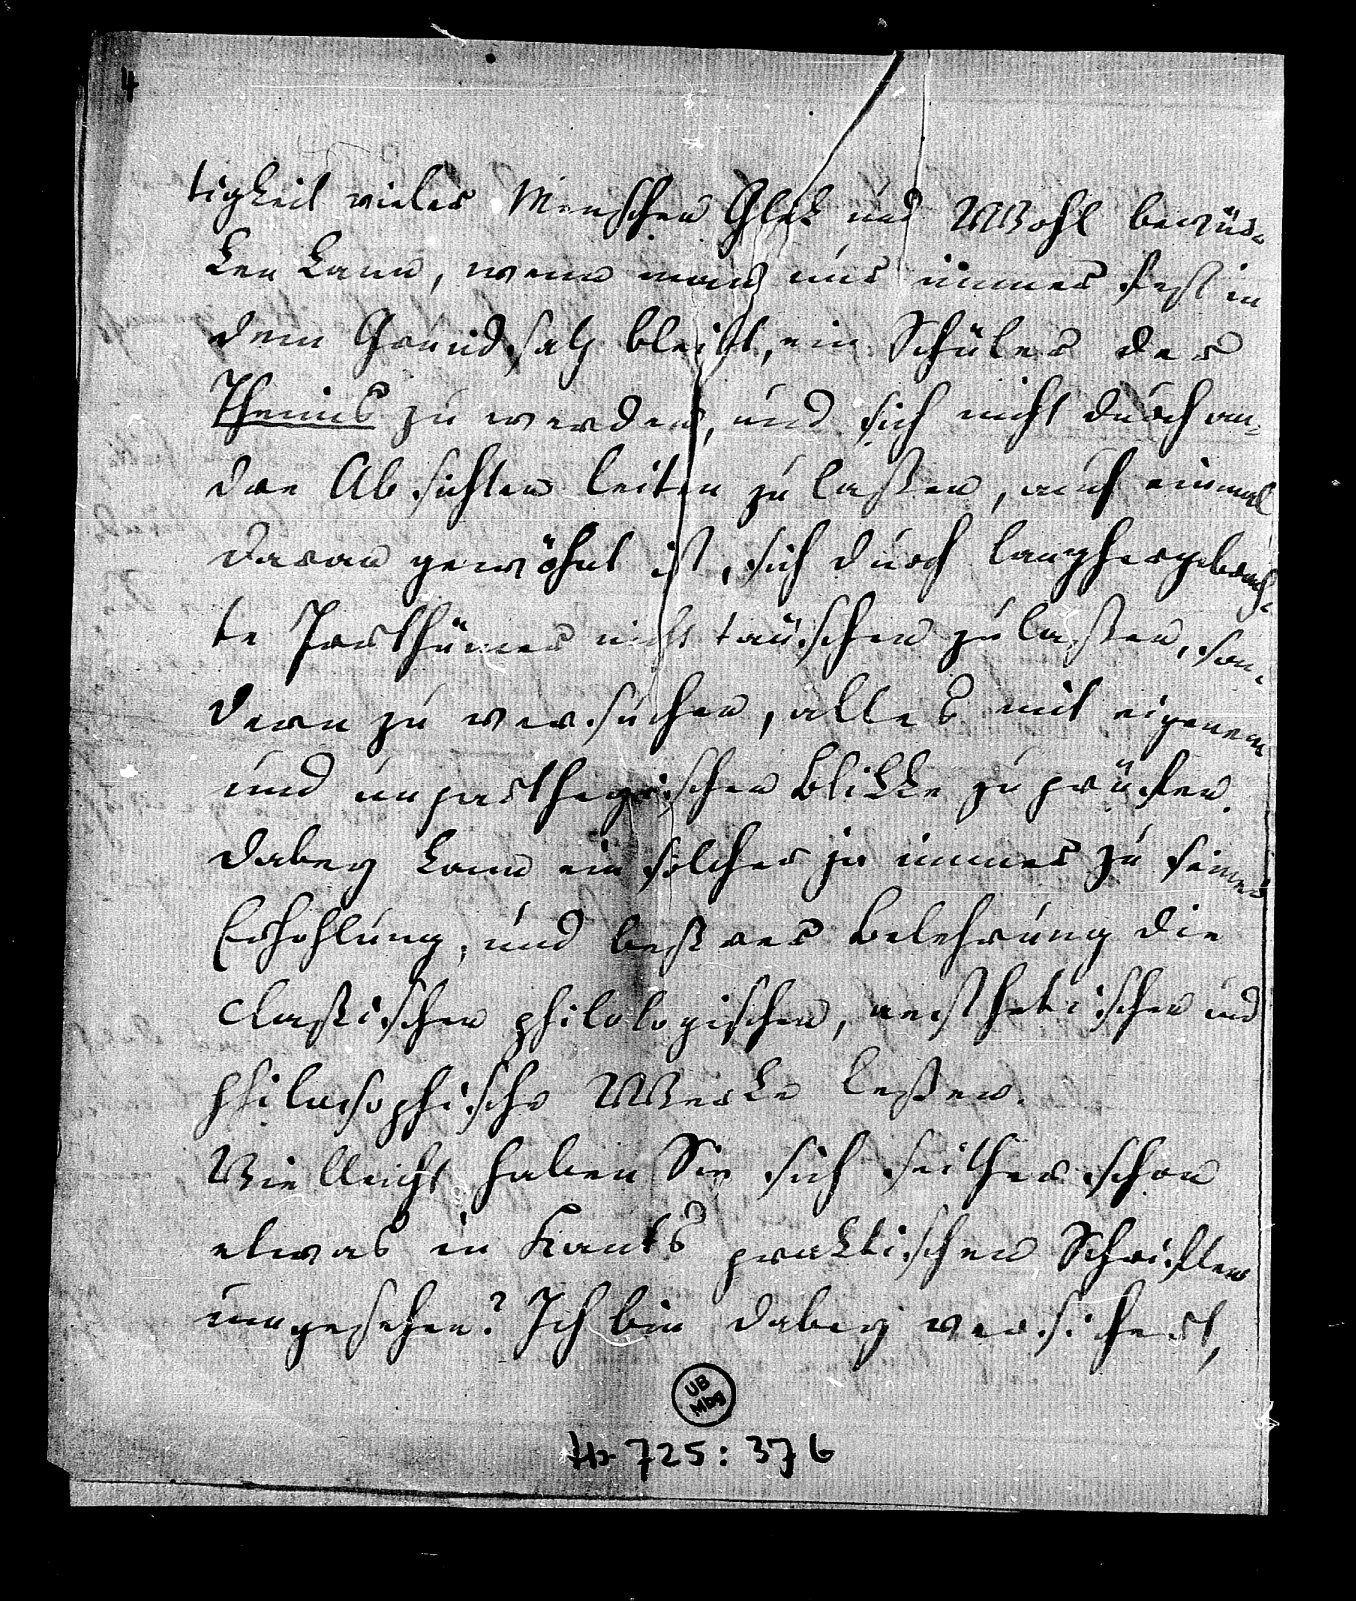 4
tigkeit vieler Menschen Glük und Wohl bewür-
ken kann, wenn man nur immer fest in
dem Grundsatz bleibt, ein Schüler der
Themis zu werden, und sich nicht durch an-
dre Absichten leiten zu laßen, auch einmal
daran gewöhnt ist, sich durch langhergebrach-
te Irrthümer nicht täuschen zu laßen, son-
dern zu versuchen, alles mit eigenem
und unpartheyischen Blikke zu prüfen.
Dabey kann ein solcher ja immer zu seiner
Erhohlung, und beßrer Belehrung die
claßischen philologischen, aesthetischen und
philosophische Werke leßen.
Vielleicht haben Sie sich seither schon
etwas in Kants praktischen Schriften
umgesehen? Ich bin dabey versichert,
UB
Mbg
Hs 725: 376